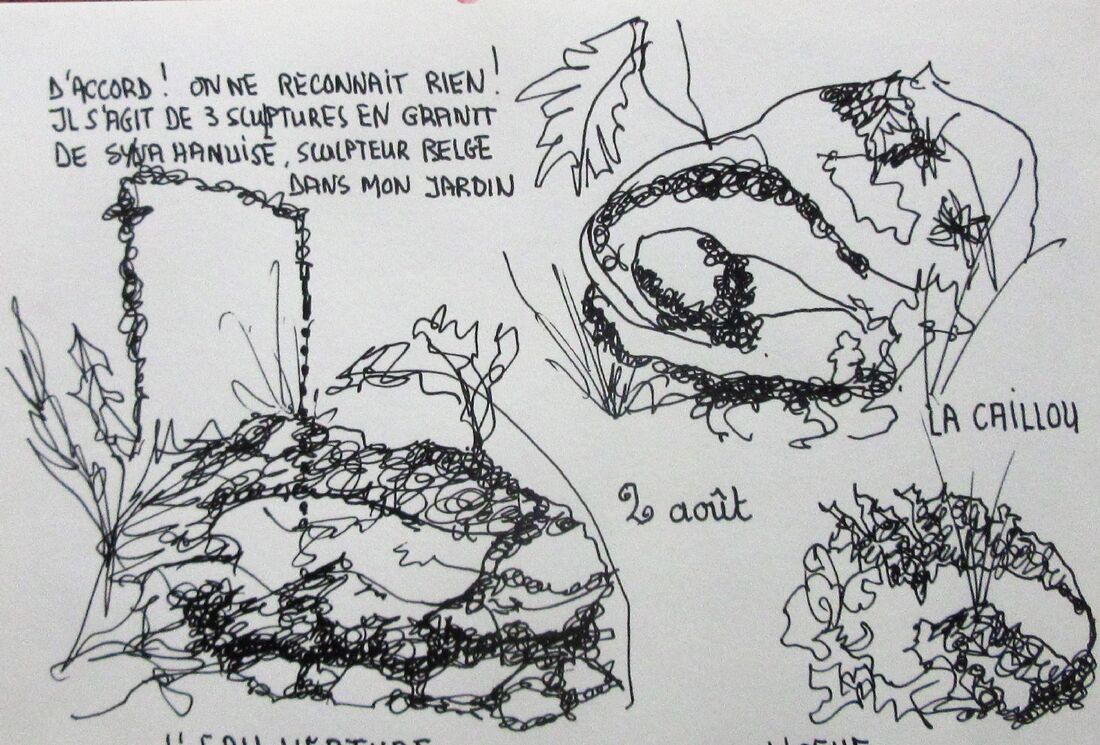 D'ACCORD ! ON NE RECONNAIT RIEN !
IL S'AGIT DE 3 SCULPTURES EN GRANIT
DE HANUISE, SCULPTEUR BELGE
DANS MON JARDIN
LA CAILLOU
2 août